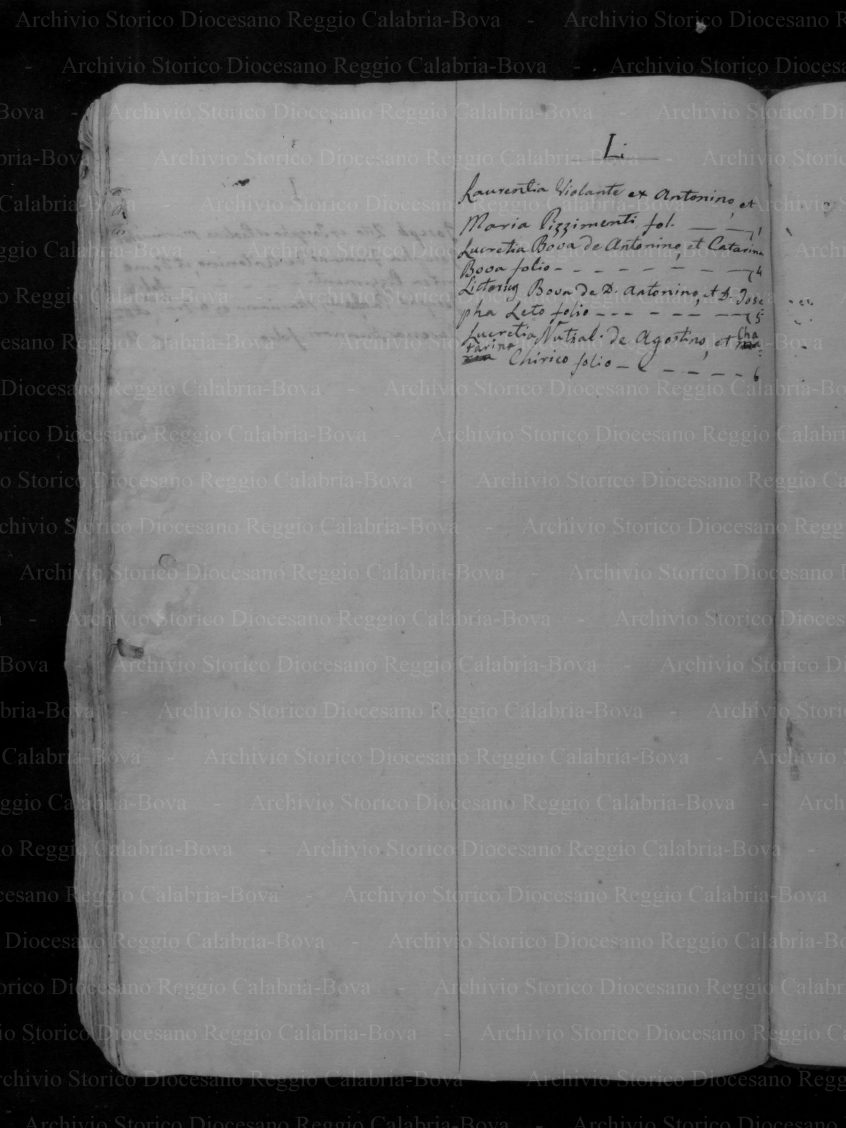 Archivio Storico Diocesano Reggio Calabria-Bova
L.
Laurentia Violante ex Antonino, et
Maria Pizzimenti fol. 1
Lucretia Bova de Antonino, et Catarina
Bova folio 4
Lictorius Bova de D. Antonino, et D. Jose
pha Leto folio 5
Lucretia Nutsal: de Agostino, et Cha
tarina Chirico folio 6